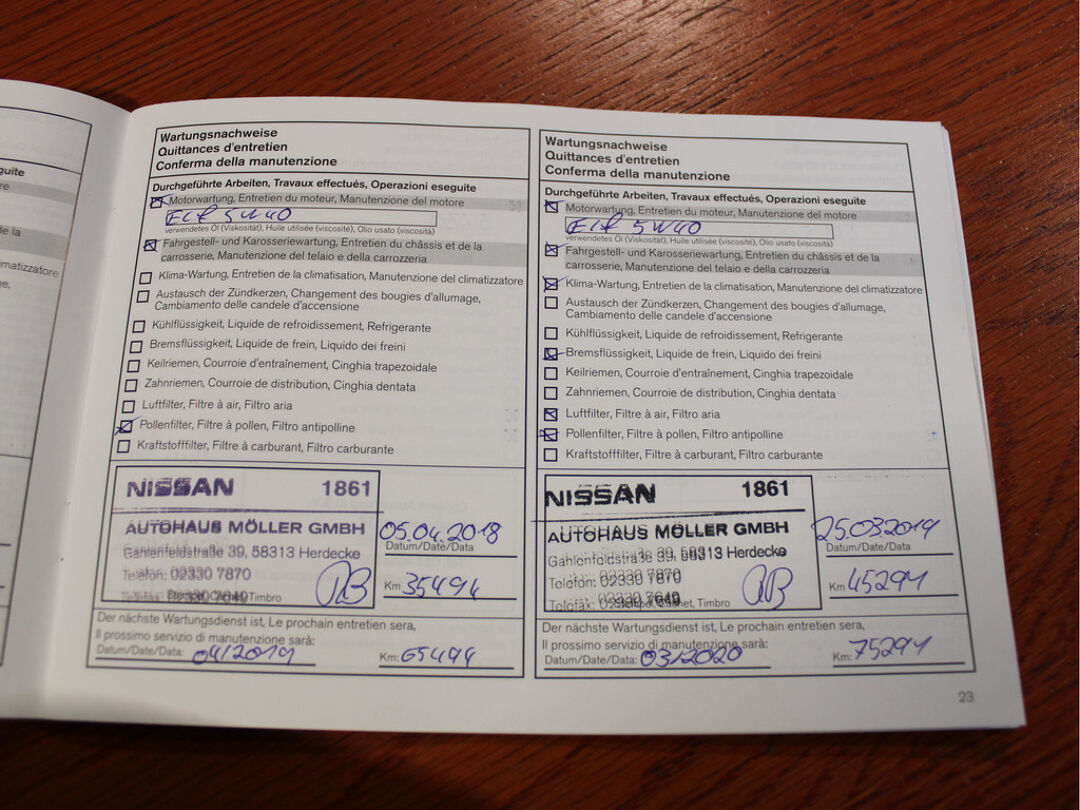 guite
re
de la
imatizzatore
e,
Wartungsnachweise
Quittances d'entretien
Conferma della manutenzione
Durchgeführte Arbeiten, Travaux effectués, Operazioni eseguite
Motorwartung, Entretien du moteur, Manutenzione del motore
Elf 5W40
verwendetes Öl (Viskosität), Huile utilisée (viscosité), Olio usato (viscosità)
Fahrgestell- und Karosseriewartung, Entretien du châssis et de la
carrosserie, Manutenzione del telaio e della carrozzeria
Klima-Wartung, Entretien de la climatisation, Manutenzione del climatizzatore
Austausch der Zündkerzen, Changement des bougies d'allumage,
Cambiamento delle candele d'accensione
Kühlflüssigkeit, Liquide de refroidissement, Refrigerante
Bremsflüssigkeit, Liquide de frein, Liquido dei freini
Keilriemen, Courroie d'entraînement, Cinghia trapezoidale
Zahnriemen, Courroie de distribution, Cinghia dentata
Luftfilter, Filtre à air, Filtro aria
Pollenfilter, Filtre à pollen, Filtro antipolline
Kraftstofffilter, Filtre à carburant, Filtro carburante
NISSAN 1861
AUTOHAUS MÖLLER GMBH
Gahlenfeldstraße 39, 58313 Herdecke
Telefon: 02330 7870
Telefax: 02330 7649
Timbro
05.04.2018
Datum/Date/Data
Km 35494
Der nächste Wartungsdienst ist, Le prochain entretien sera,
Il prossimo servizio di manutenzione sarà:
Datum/Date/Data: 04/2019 Km: 65494
Wartungsnachweise
Quittances d'entretien
Conferma della manutenzione
Durchgeführte Arbeiten, Travaux effectués, Operazioni eseguite
Motorwartung, Entretien du moteur, Manutenzione del motore
Elf 5W40
verwendetes Öl (Viskosität), Huile utilisée (viscosité), Olio usato (viscosità)
Fahrgestell- und Karosseriewartung, Entretien du châssis et de la
carrosserie, Manutenzione del telaio e della carrozzeria
Klima-Wartung, Entretien de la climatisation, Manutenzione del climatizzatore
Austausch der Zündkerzen, Changement des bougies d'allumage,
Cambiamento delle candele d'accensione
Kühlflüssigkeit, Liquide de refroidissement, Refrigerante
Bremsflüssigkeit, Liquide de frein, Liquido dei freini
Keilriemen, Courroie d'entraînement, Cinghia trapezoidale
Zahnriemen, Courroie de distribution, Cinghia dentata
Luftfilter, Filtre à air, Filtro aria
Pollenfilter, Filtre à pollen, Filtro antipolline
Kraftstofffilter, Filtre à carburant, Filtro carburante
NISSAN 1861
AUTOHAUS MÖLLER GMBH
Gahlenfeldstraße 39, 58313 Herdecke
Telefon: 02330 7870
Telefax: 02330 7649
Stempel, Cachet, Timbro
25.03.2019
Datum/Date/Data
Km 45291
Der nächste Wartungsdienst ist, Le prochain entretien sera,
Il prossimo servizio di manutenzione sarà:
Datum/Date/Data: 03/2020 Km: 75291
23